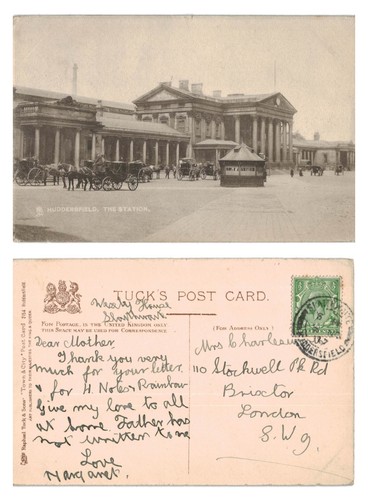 HUDDERSFIELD, THE STATION.
TUCK'S POST CARD.
FOR POSTAGE, IN THE UNITED KINGDOM ONLY
THIS SPACE MAY BE USED FOR CORRESPONDENCE.
(FOR ADDRESS ONLY.)
House
Dear Mother
Thank you very
much for your letter,
& for 4 Notes Rainbow
Give my love to all
at home. Father has
not written to me
Love
Margaret.
Mrs
110 Stockwell Pk Rd
Brixton
London
S.W.9.
Raphael Tuck & Sons' "Town & City" Post Card